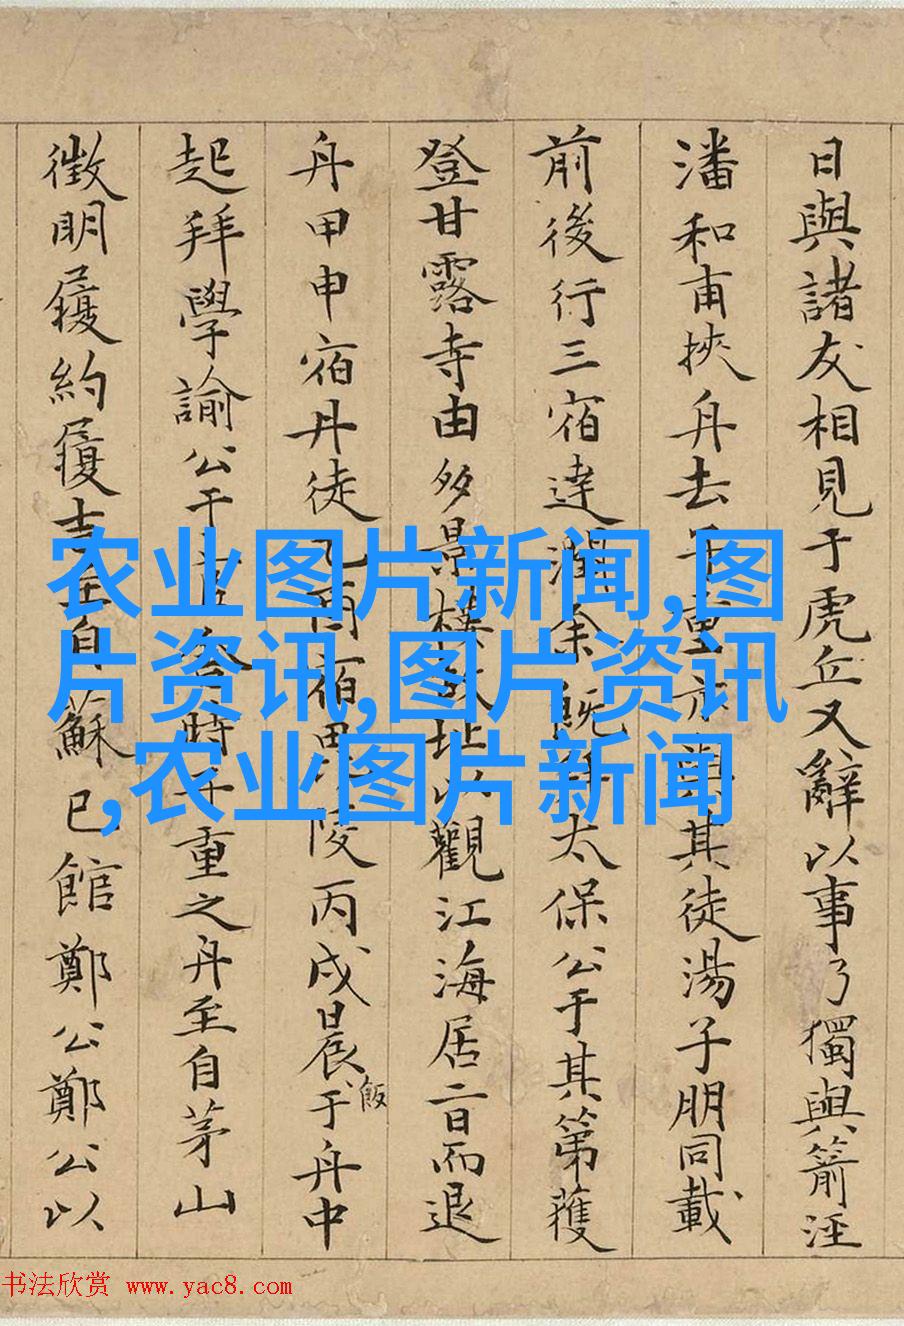 日與諸友相見于虎丘又辭以事乃獨與箭涇
潘和甫挾舟去子重亦與其徒湯子朋同載
前後行三宿達潤余既拜太保公于其第獲
登甘露寺由多景樓故址以觀江海居二日而退
舟甲申宿丹徒乙酉宿毘陵丙戌晨飯于舟中
起拜學諭公于舍時子重之舟至自茅山
徵明履約履吉自蘇已館鄭公鄭公以
农业图片新闻,图
片资讯,图片资讯
,农业图片新闻
书法欣赏 www.yac8.com